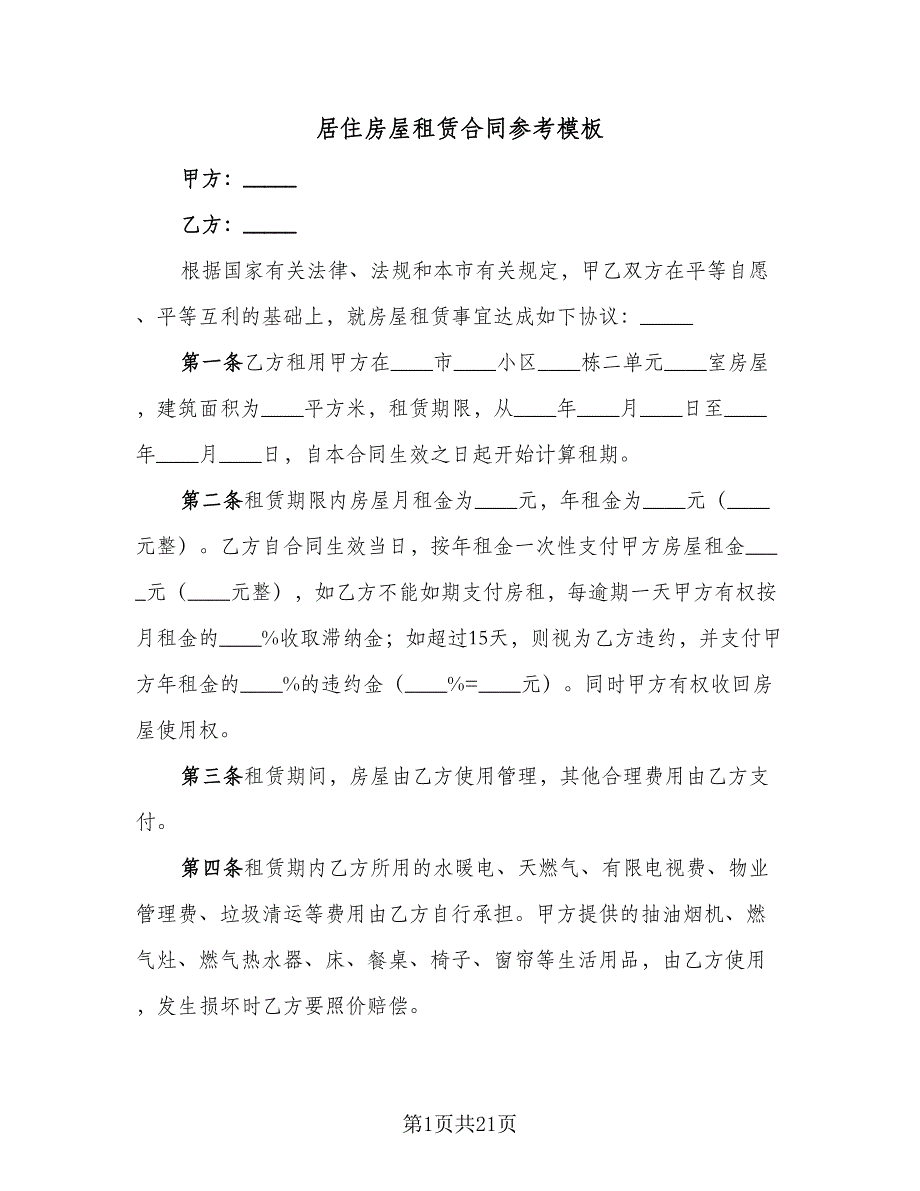 居住房屋租赁合同参考模板
甲方：_____
乙方：_____
根据国家有关法律、法规和本市有关规定，甲乙双方在平等自愿
、平等互利的基础上，就房屋租赁事宜达成如下协议：_____
第一条乙方租用甲方在____市____小区____栋二单元____室房屋
，建筑面积为____平方米，租赁期限，从____年____月____日至____
年____月____日，自本合同生效之日起开始计算租期。
第二条租赁期限内房屋月租金为____元，年租金为____元（____
元整）。乙方自合同生效当日，按年租金一次性支付甲方房屋租金___
_元（____元整），如乙方不能如期支付房租，每逾期一天甲方有权按
月租金的____%收取滞纳金；如超过15天，则视为乙方违约，并支付甲
方年租金的____%的违约金（____%=____元）。同时甲方有权收回房
屋使用权。
第三条租赁期间，房屋由乙方使用管理，其他合理费用由乙方支
付。
第四条租赁期内乙方所用的水暖电、天燃气、有限电视费、物业
管理费、垃圾清运等费用由乙方自行承担。甲方提供的抽油烟机、燃
气灶、燃气热水器、床、餐桌、椅子、窗帘等生活用品，由乙方使用
，发生损坏时乙方要照价赔偿。
第1页共21页